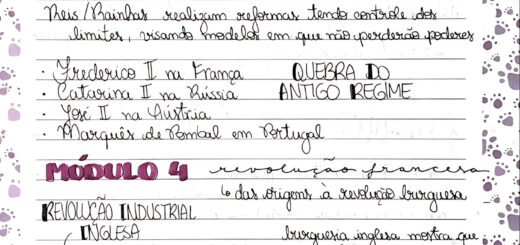 Reis/Rainhas realizam reformas tendo controle dos
limites, visando modelos em que não perderão poderes
· Frederico II na França QUEBRA DO
· Catarina II na Rússia ANTIGO REGIME
· José II na Áustria
· Marquês de Pombal em Portugal
MÓDULO 4 revolução francesa
↳ das origens à revolução burguesa
REVOLUÇÃO INDUSTRIAL
INGLESA burguesia inglesa mostra que